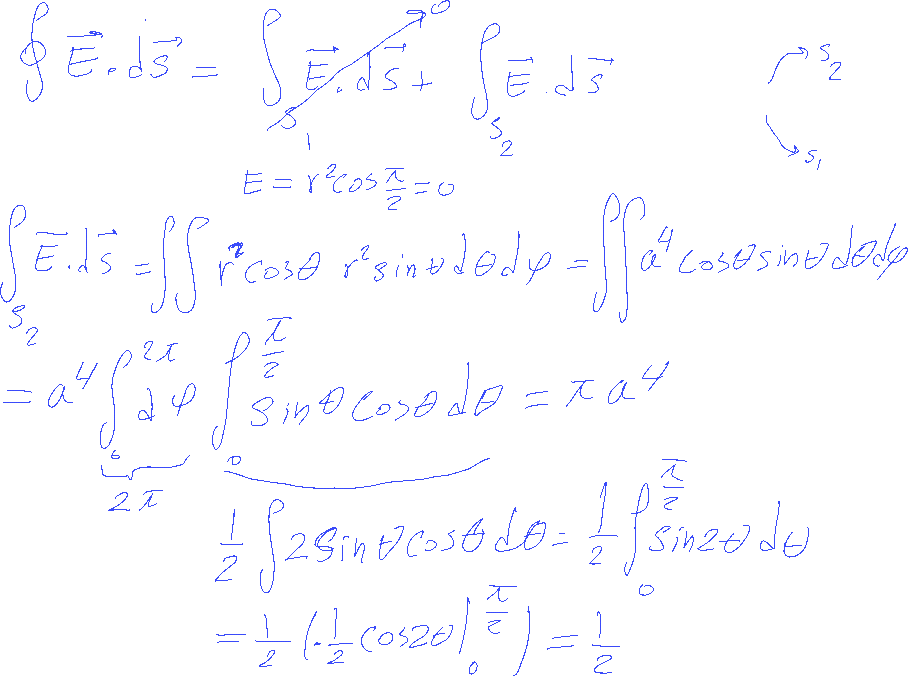 ∮ E⃗ . ds⃗ = ∫_{S₁} E⃗ . ds⃗ + ∫_{S₂} E⃗ . ds⃗
0
S₂
S₁
E = r² cos π/2 = 0
∫_{S₂} E⃗ . ds⃗ = ∬ r² cosθ r² sinθ dθ dφ = ∬ a⁴ cosθ sinθ dθ dφ
= a⁴ ∫₀^{2π} dφ ∫₀^{π/2} sinθ cosθ dθ = π a⁴
2π
1/2 ∫ 2 sinθ cosθ dθ = 1/2 ∫₀^{π/2} sin2θ dθ
= 1/2 (-1/2 cos2θ |₀^{π/2}) = 1/2